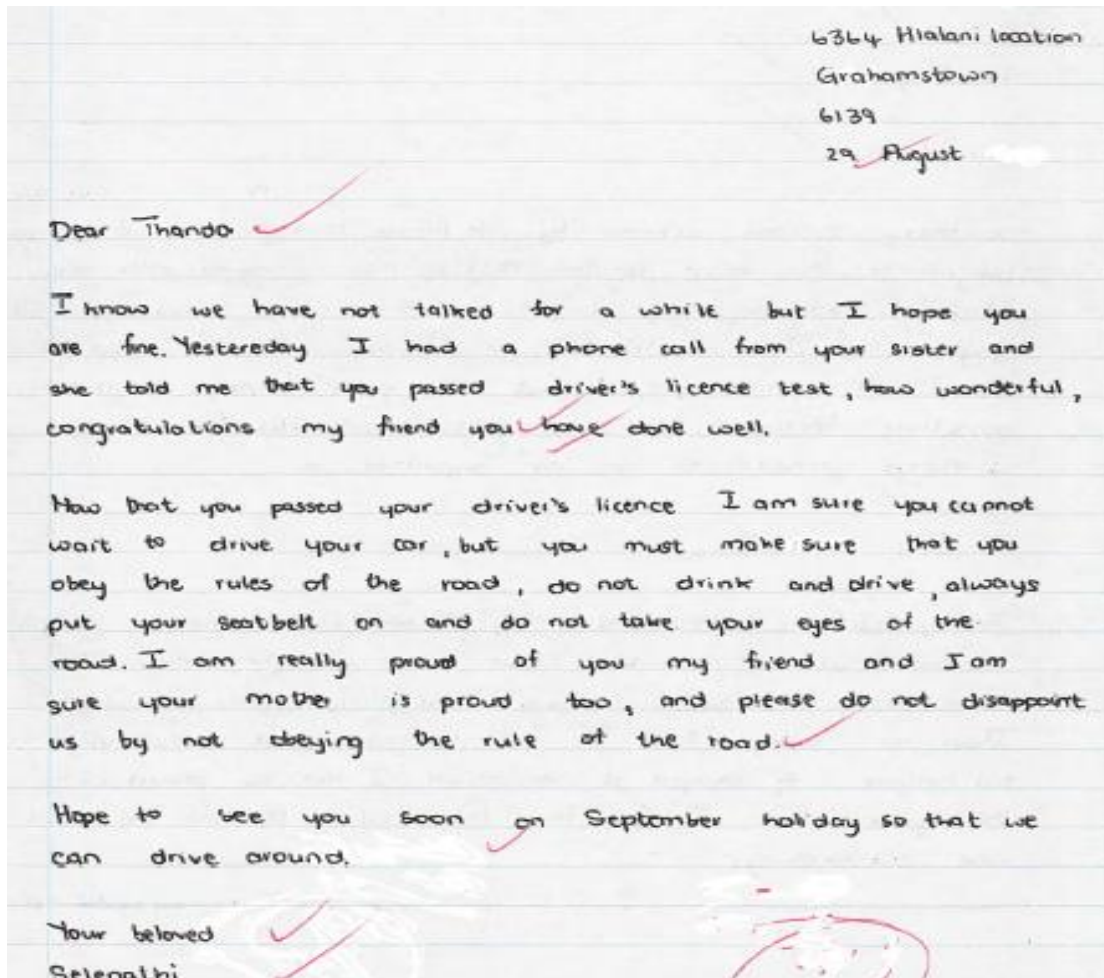 6364 Hlalani location
Grahamstown
6139
29 August
Dear Thando
I know we have not talked for a while but I hope you
are fine. Yestereday I had a phone call from your sister and
she told me that you passed driver's licence test, how wonderful,
congratulations my friend you have done well.
Now that you passed your driver's licence I am sure you cannot
wait to drive your car, but you must make sure that you
obey the rules of the road, do not drink and drive, always
put your seatbelt on and do not take your eyes of the
road. I am really proud of you my friend and I am
sure your mother is proud too, and please do not disappoint
us by not obeying the rule of the road.
Hope to see you soon on September holiday so that we
can drive around.
Your beloved